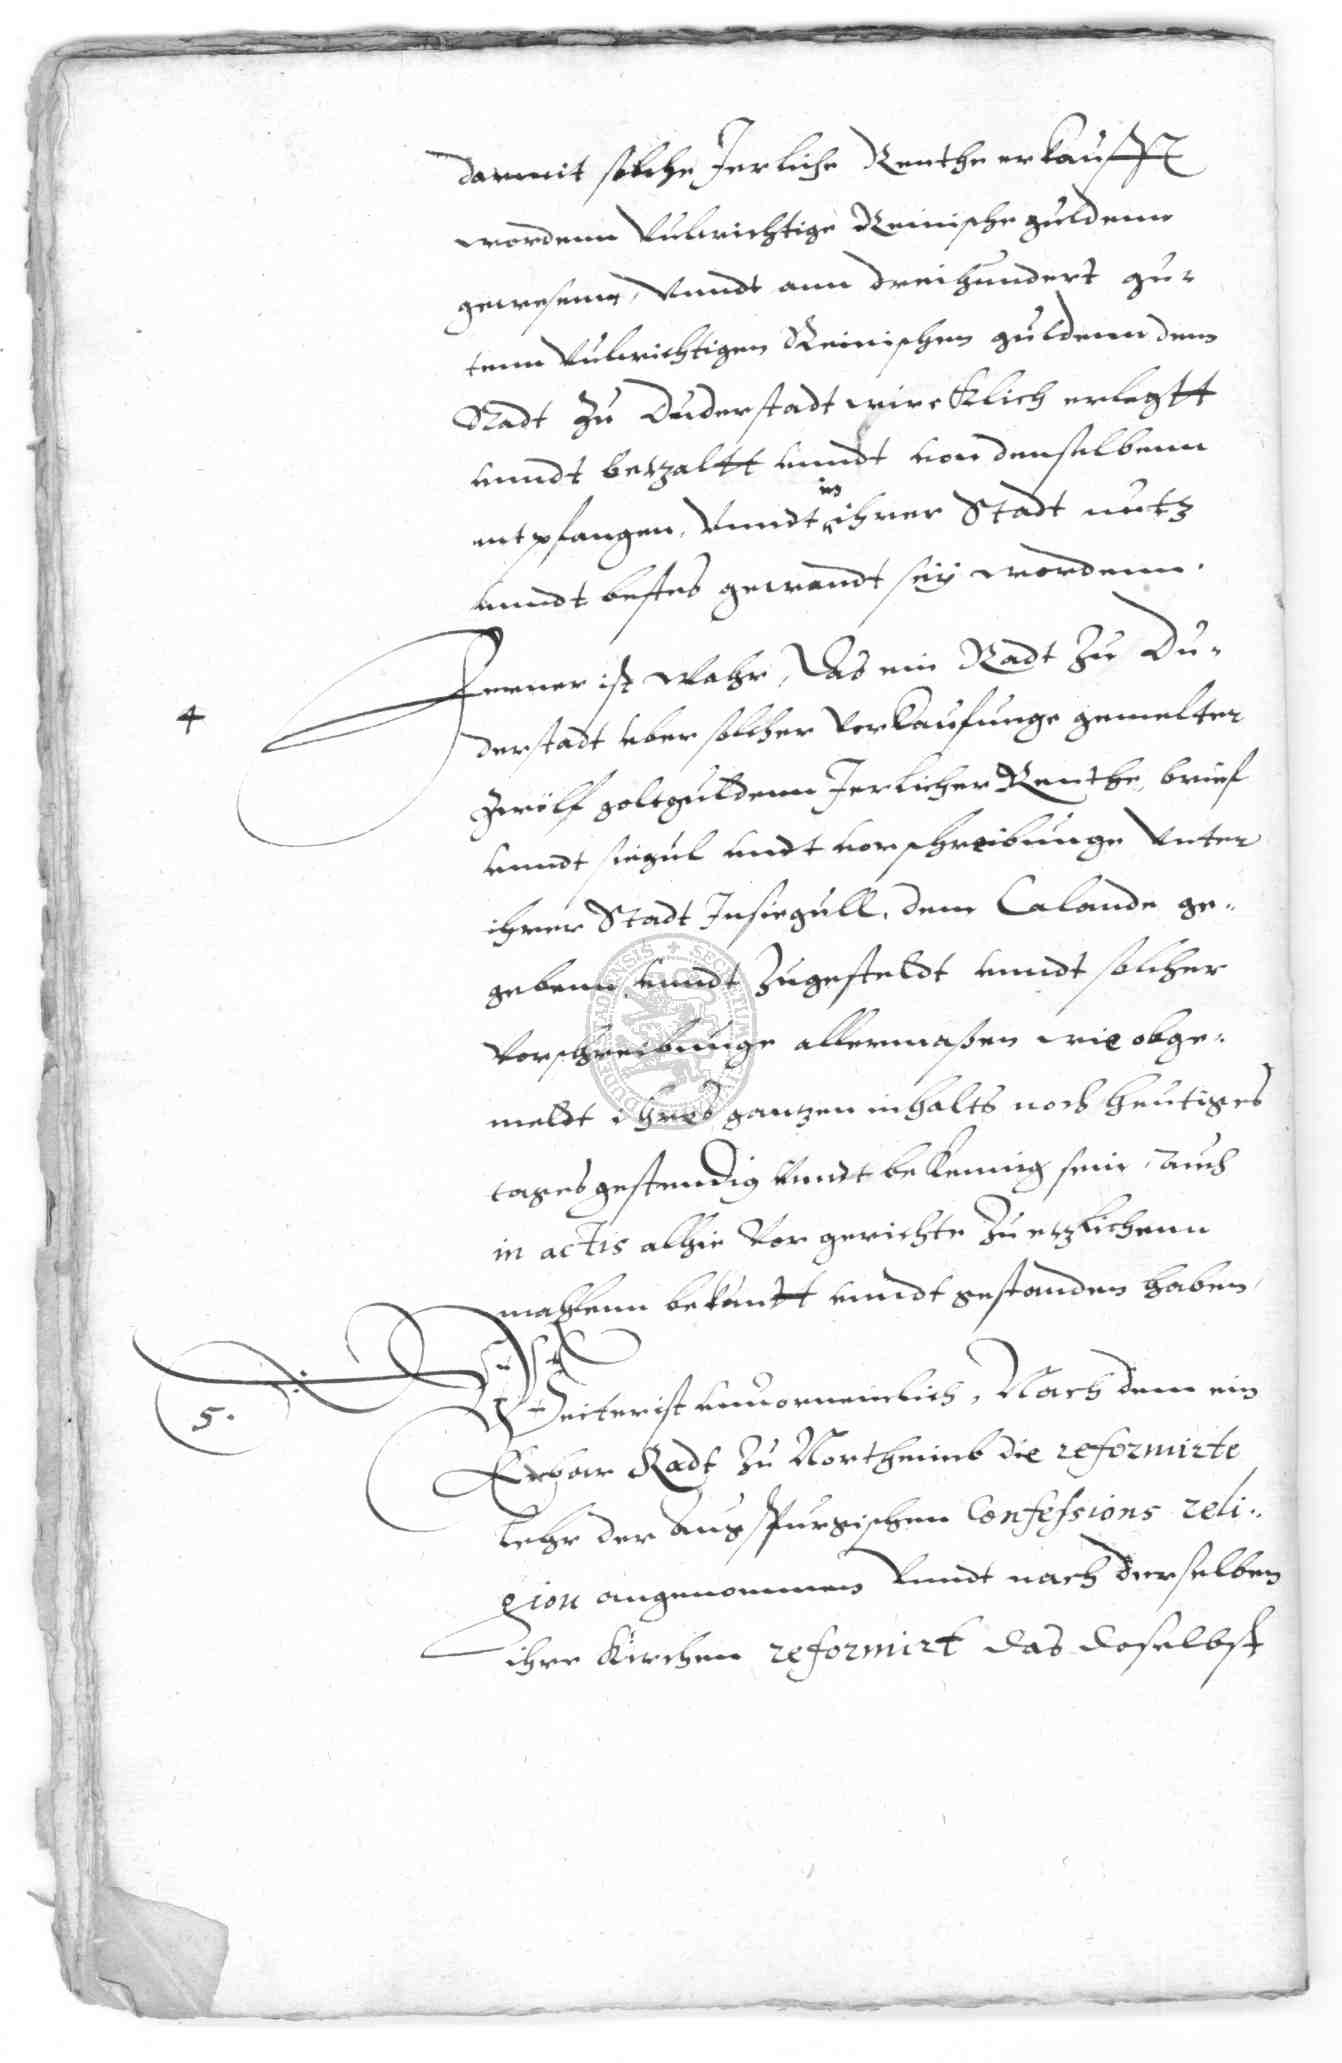 darmit solche Jerliche Renthe erkaufft
wordenn Vulwichtige Reinische guldenn
gewesenn, Vnndt ann dreihundert gu-
tenn Vulwichtigen Reinischen guldenn dem
Radt zu Duderstadt wircklich erlegtt
vnndt betzaltt vnndt von denselbenn
entpfangen, Vnndt in ihrer Stadt nutz
vnndt bestes gewandt sey wordenn.
4 Ferner ist wahr, Das ein Radt zu Du-
derstadt vber solcher Vorkaufunge gemelter
zwölff goltguldenn Jerlicher Renthe, brief
vnndt siegul vndt vorschreibunge Vnter
ihrer Stadt Insiegull, dem Calande ge-
gebenn vnndt zugesteldt vnndt solcher
Vorschreibunge allermaßen wie obge-
meldt ihres gantzen inhalts noch heutiges
tages gestendig Vnndt bekennig sein, auch
in actis alhie Vor gerichte zu etzlichenn
mahlenn bekantt vnndt gestanden haben,
5. Weiter ist vnuorneinlich, Nach dem ein
Erbar Radt zu Northeimb die reformirte
Lehr der Augspurgischen Confessions reli-
gion angenommen Vnndt nach derselben
ihre Kirchen reformirt das doselbst